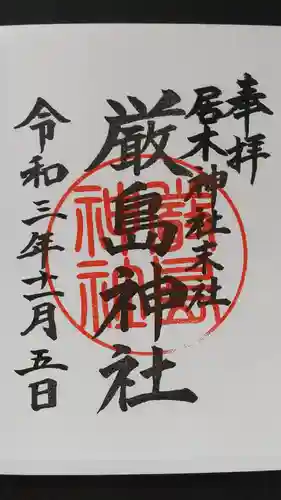 奉拝
居木神社末社
厳島神社
令和三年十一月五日
厳島
神社